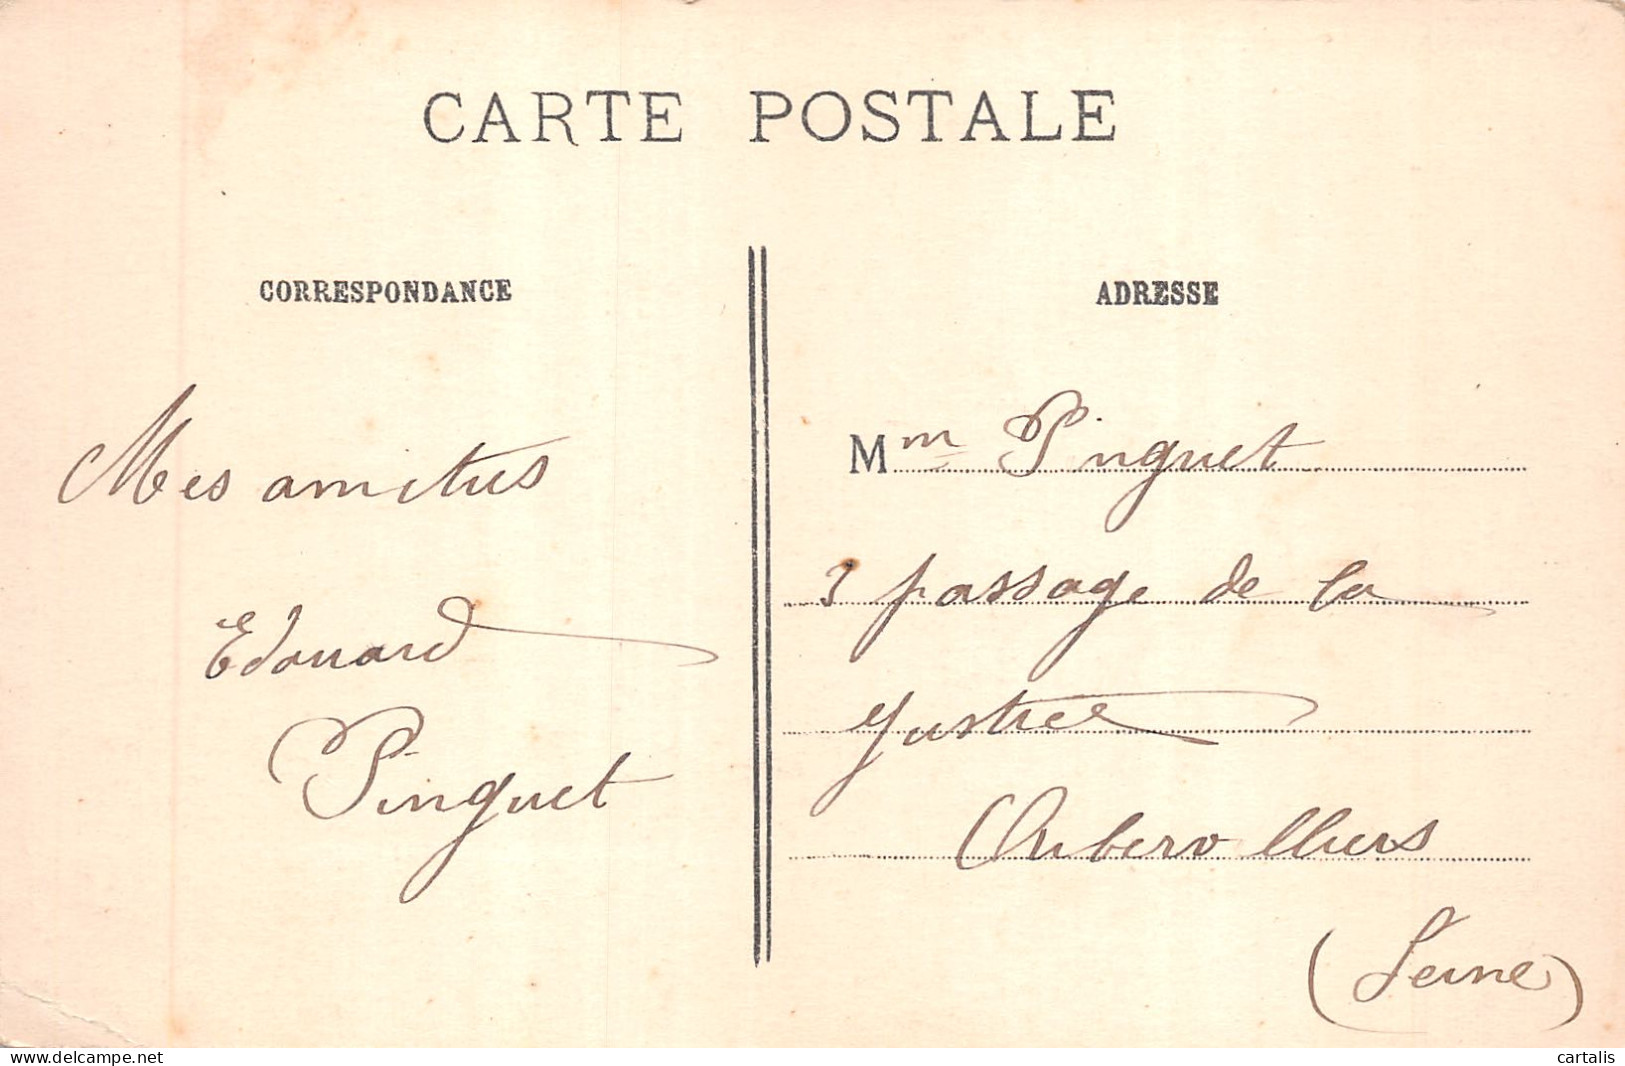 CARTE POSTALE
CORRESPONDANCE
ADRESSE
Mes amitiés
Edouard
Pinguet
Mme Pinguet
3 passage de la
Justice
Aubervilliers
(Seine)
www.delcampe.net
cartalis